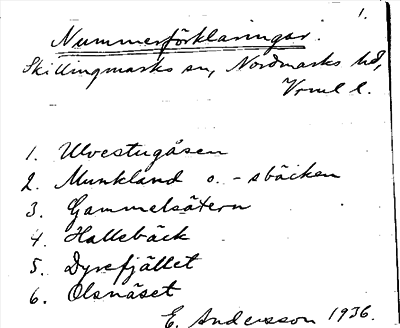 1.
Nummerförklaringar.
Skillingmarks sn, Nordmarks hd,
Vrml l.
1. Ulvestugåsen
2. Munkland o. -sbäcken
3. Gammelsätern
4. Hallebäck
5. Dyrefjället
6. Olsnäset
E. Andersson 1936.